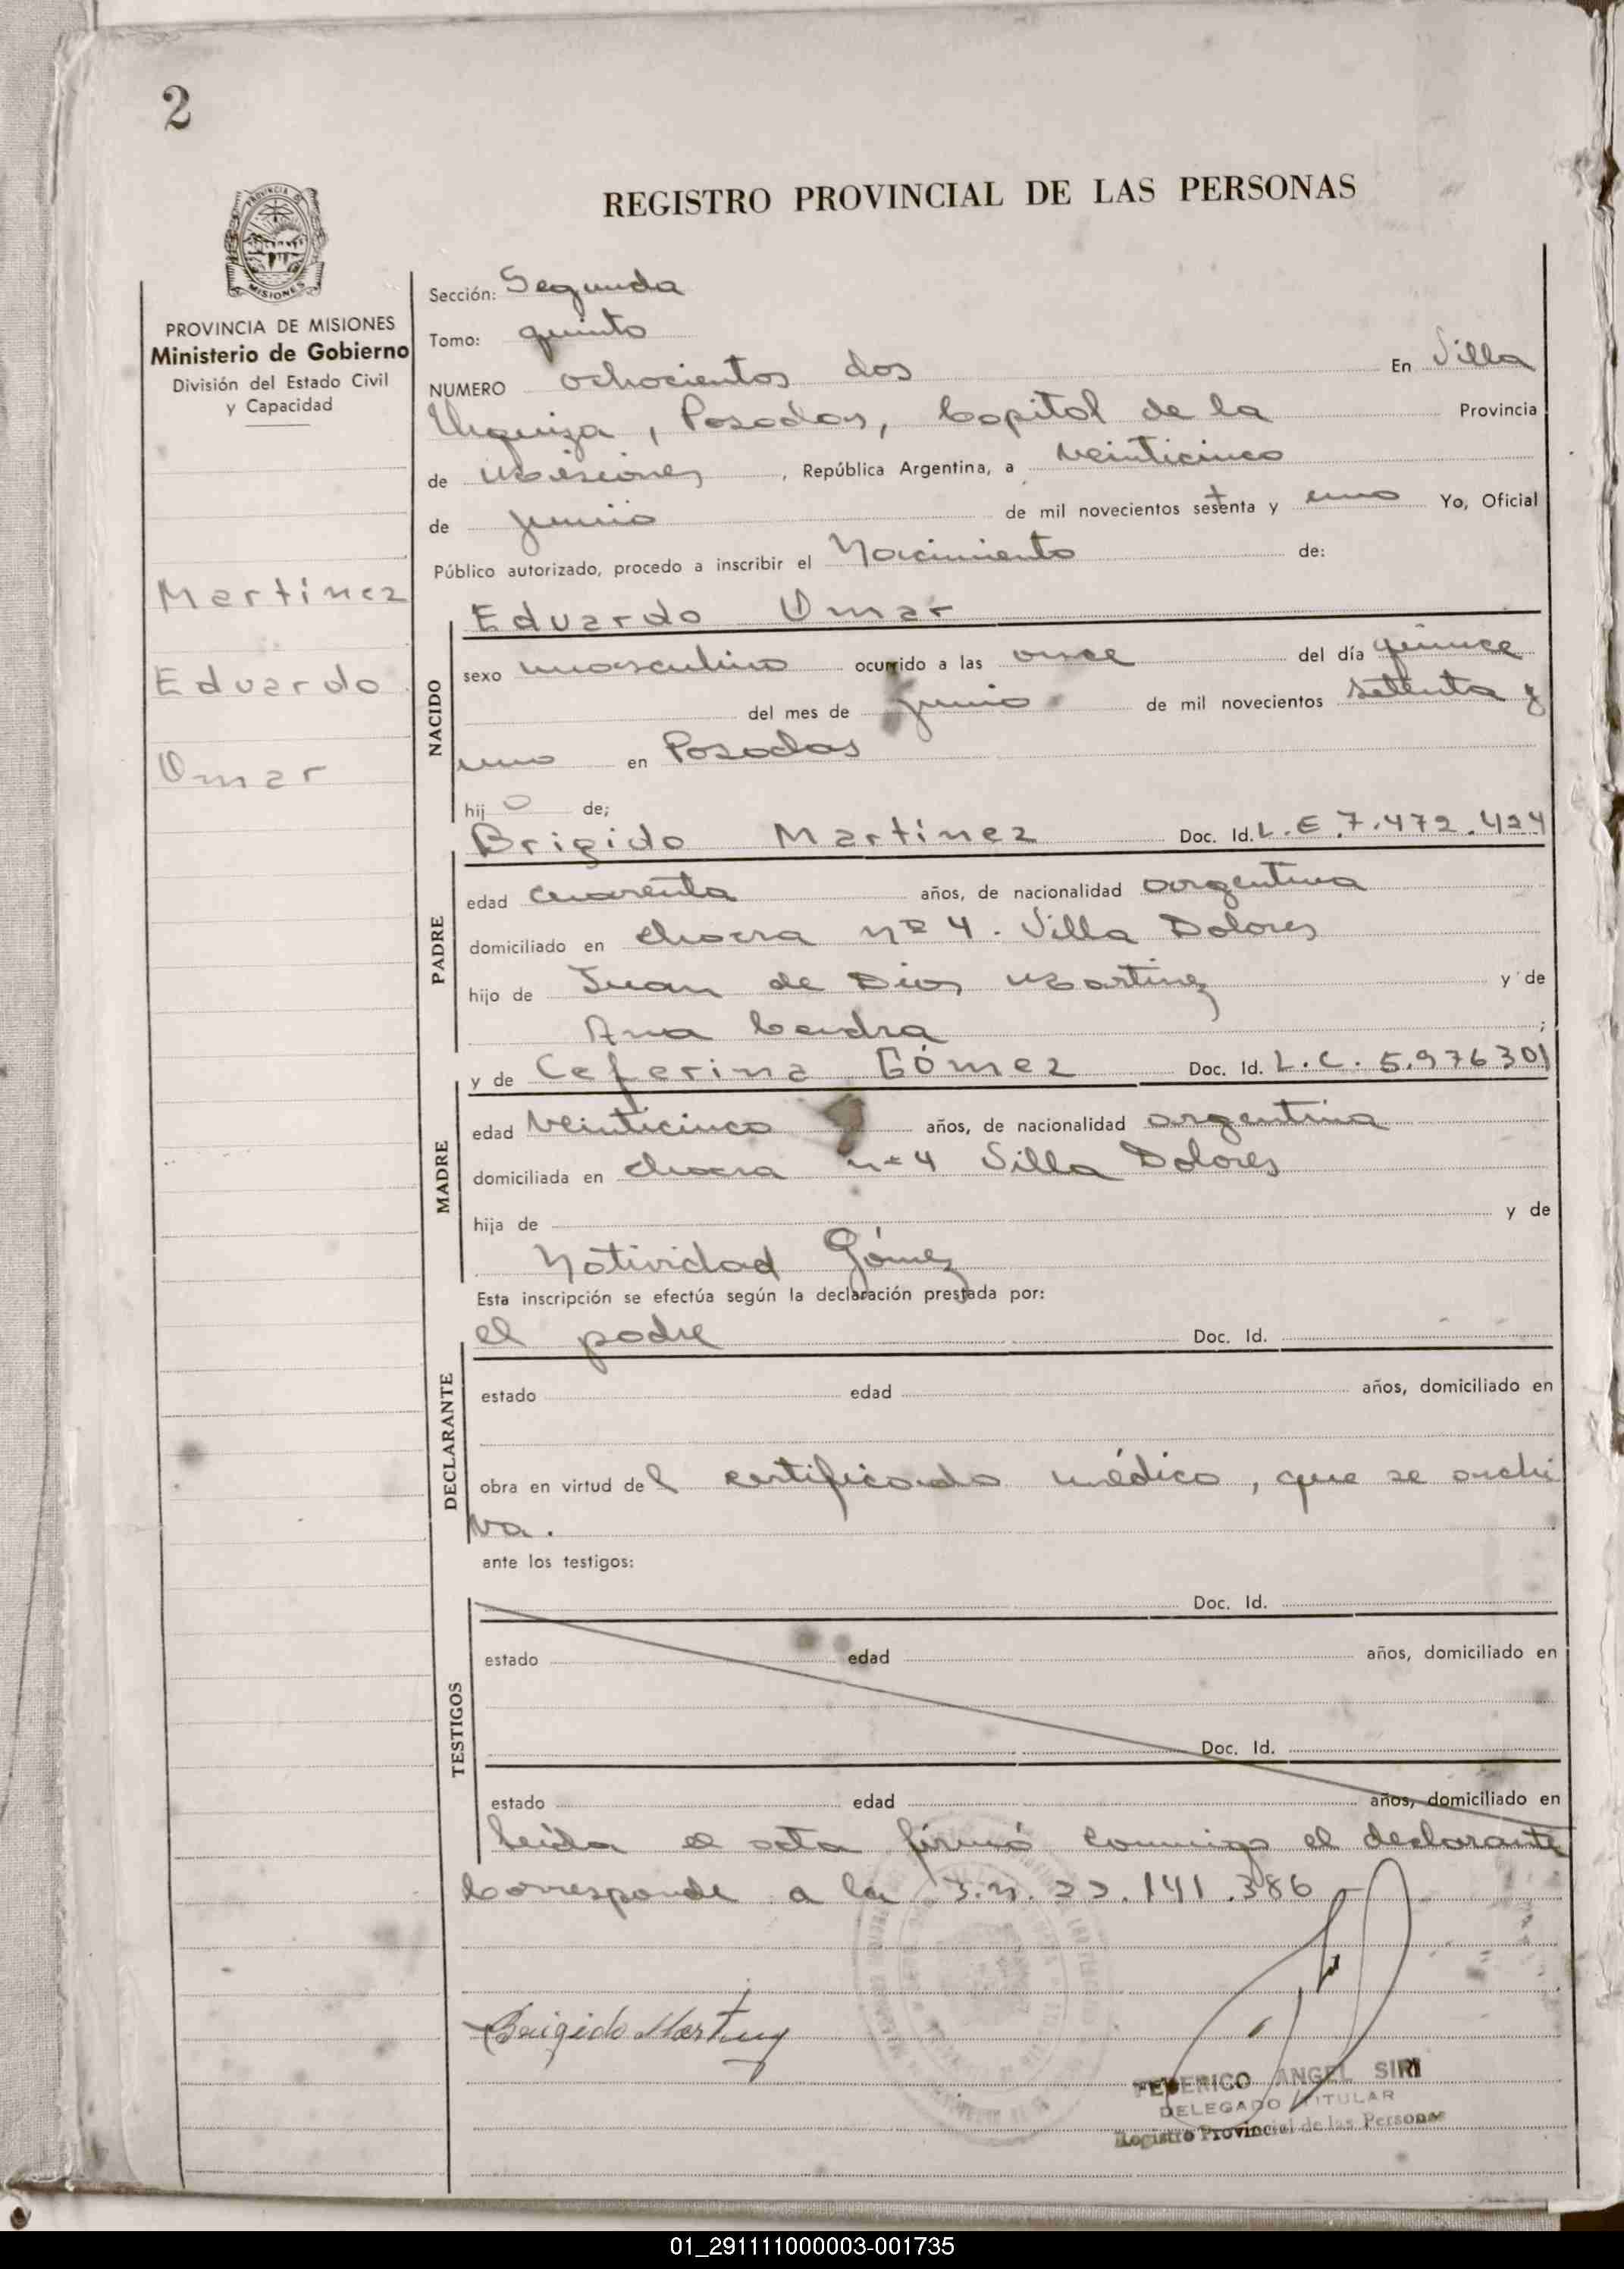 2
REGISTRO PROVINCIAL DE LAS PERSONAS
PROVINCIA DE MISIONES
Ministerio de Gobierno
División del Estado Civil
y Capacidad
Martínez
Eduardo
Omar
Sección: Segunda
Tomo: quinto
NUMERO ochocientos dos En Villa
Urquiza, Posadas, Capital de la Provincia
de Misiones, República Argentina, a veinticinco
de junio de mil novecientos setenta y uno Yo, Oficial
Público autorizado, procedo a inscribir el Nacimiento de:
NACIDO
Eduardo Omar
sexo masculino ocurrido a las once del día quince
del mes de junio de mil novecientos setenta y
uno en Posadas
hijo de;
PADRE
Brigido Martínez Doc. Id. L.E 7.472.424
edad cuarenta años, de nacionalidad argentina
domiciliado en chacra nº 4. Villa Dolores
hijo de Juan de Dios Martinez y de
Ana ;
MADRE
y de Ceferina Gómez Doc. Id. L.C. 5.976301
edad veinticinco años, de nacionalidad argentina
domiciliada en chacra nº 4 Villa Dolores
hija de y de
Natividad Gómez
Esta inscripción se efectúa según la declaración prestada por:
DECLARANTE
el padre Doc. Id.
estado edad años, domiciliado en
obra en virtud del certificado médico, que se archi
va.
ante los testigos:
TESTIGOS
Doc. Id.
estado edad años, domiciliado en
Doc. Id.
estado edad años, domiciliado en
Leída el acta firmó conmigo el declarante
Corresponde a la 22.141.386
Brigido Martinez
FEDERICO ANGEL SIRI
DELEGADO TITULAR
Registro Provincial de las Personas
01_291111000003-001735